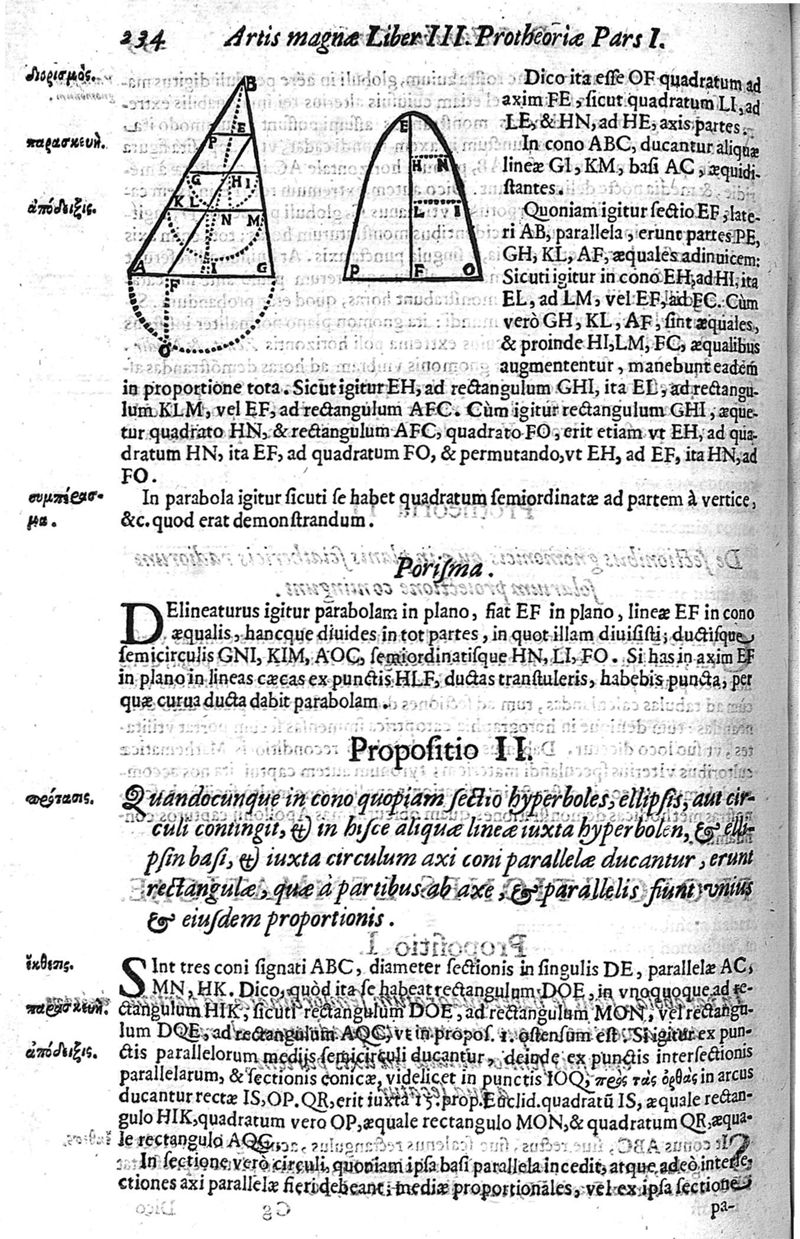 234 Artis magnæ Liber III. Protheoriæ Pars I.
διορισμός.
παρασκευή.
ἀπόδειξις.
B
P E
G H I
K L N M
A F I G
O
E
H N
L I
P F O
Dico ita esse OF quadratum ad
axim FE, sicut quadratum LI, ad
LE, & HN, ad HE, axis partes.
In cono ABC, ducantur aliquæ
lineæ GI, KM, basi AC, æquidi-
stantes.
Quoniam igitur sectio EF, late-
ri AB, parallela, erunt partes PE,
GH, KL, AF, æquales adinuicem:
Sicuti igitur in cono EH, ad HI, ita
EL, ad LM, vel EF, ad FC. Cùm
verò GH, KL, AF, sint æquales,
& proinde HI, LM, FC, æqualibus
augmententur, manebunt eadem
in proportione tota. Sicut igitur EH, ad rectangulum GHI, ita EL, ad rectangu-
lum KLM, vel EF, ad rectangulum AFC. Cùm igitur rectangulum GHI, æque-
tur quadrato HN, & rectangulum AFC, quadrato FO, erit etiam vt EH, ad qua-
dratum HN, ita EF, ad quadratum FO, & permutando, vt EH, ad EF, ita HN, ad
FO.
συμπέρασ-
μα.
In parabola igitur sicuti se habet quadratum semiordinatæ ad partem à vertice,
&c. quod erat demonstrandum.
Porisma.
DElineaturus igitur parabolam in plano, fiat EF in plano, lineæ EF in cono
æqualis, hancque diuides in tot partes, in quot illam diuisisti; ductisque
semicirculis GNI, KIM, AOC, semiordinatisque HN, LI, FO. Si has in axim EF
in plano in lineas cæcas ex punctis HLF, ductas transtuleris, habebis puncta, per
quæ curua ducta dabit parabolam.
Propositio II.
πρότασις.
Quandocunque in cono quopiam sectio hyperboles, ellipsis, aut cir-
culi contingit, & in hisce aliquæ lineæ iuxta hyperbolen, & elli-
psin basi, & iuxta circulum axi coni parallelæ ducantur, erunt
rectangulæ, quæ à partibus ab axe, & parallelis fiunt vnius
& eiusdem proportionis.
ἔκθεσις.
παρασκευή.
ἀπόδειξις.
SInt tres coni signati ABC, diameter sectionis in singulis DE, parallelæ AC,
MN, HK. Dico, quòd ita se habeat rectangulum DOE, in vnoquoque ad re-
ctangulum HIK, sicuti rectangulum DOE, ad rectangulum MON, vel rectangu-
lum DQE, ad rectangulum AQC, vt in propos. 1. ostensum est. Si igitur ex pun-
ctis parallelorum medijs semicirculi ducantur, deinde ex punctis intersectionis
parallelarum, & sectionis conicæ, videlicet in punctis IOQ, πρὸς τὰς ὀρθὰς in arcus
ducantur rectæ IS, OP. QR, erit iuxta 15. prop. Euclid. quadratũ IS, æquale rectan-
gulo HIK, quadratum vero OP, æquale rectangulo MON, & quadratum QR, æqua-
le rectangulo AQC.
In sectione verò circuli, quoniam ipsa basi parallela incedit, atque adeò interse-
ctiones axi parallelæ fieri debeant; mediæ proportionales, vel ex ipsa sectione
pa-